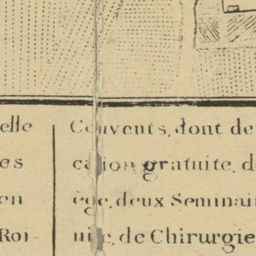 elle
es
en
Roi
Couvents, dont de
cation gratuite, d
ège, deux Seminai
de Chirurgie